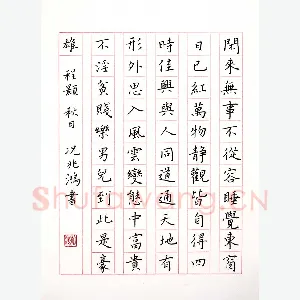 閑來無事不從容睡覺東窗
日已紅萬物靜觀皆自得四
時佳興與人同道通天地有
形外思入風雲變態中富貴
不淫貧賤樂男兒到此是豪
雄 程顥 秋日 况兆鴻書
Shufawang.CN